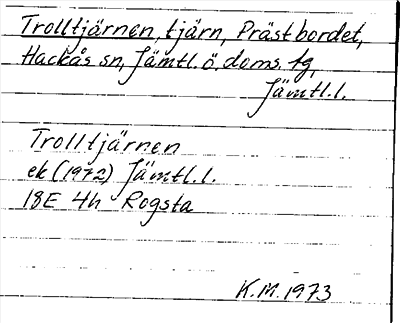 Trolltjärnen, tjärn, Prästbordet,
Hackås sn, Jämtl. ö. doms. tg,
Jämtl.l.
Trolltjärnen
ek (1972) Jämtl.l.
18E 4h Rogsta
K.M. 1973